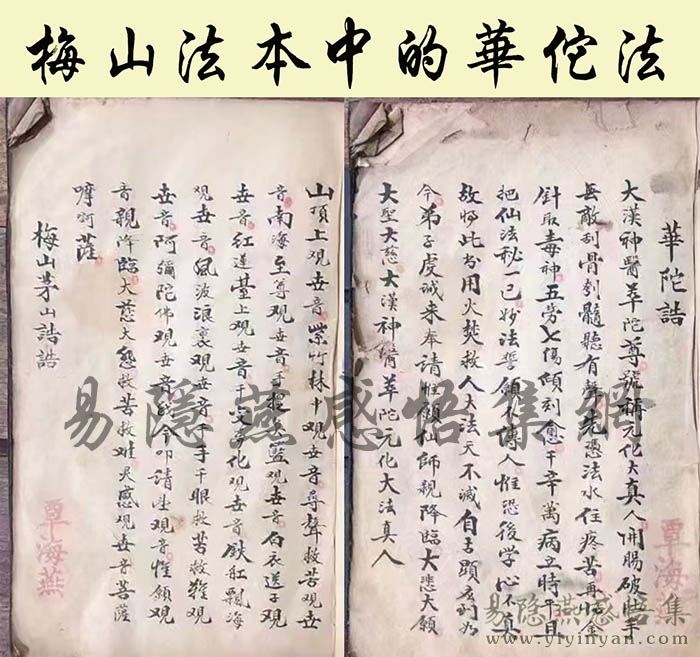 梅山法本中的華佗法
華陀誥
大漢神醫華陀尊號稱元化大真人開腸破肚手
無敵刮骨剜髓聽有聲先憑法水住疼苦再將金
針取毒神五劳七傷傾刻愈千辛萬病立時平旦
把仙法秘一己妙法誓願不傳人惟恐後学心不真
故将此书用火焚救人大法天不滅自古顕應到如
今弟子虔誠来奉請惟願仙師親降臨大悲大願
大聖大慈大漢神醫華陀元化大法真人
山頂上观世音紫竹林中观世音尋聲救苦观世
音南海至尊观世音手提藍观世音白衣送子观
世音红莲臺上观世音千文化观世音鉄舡飄海
观世音風波浪裏观世音千手千眼救苦救難观
世音阿彌陀佛观世音今叩請观音惟願观
音親降臨大慈大悲救苦救难灵感观世音菩薩
嚤啊薩
梅山茅山誥誥
易隱燕感悟集網
覃海燕
覃海
易隐燕感悟集
www.yiyinyan.com